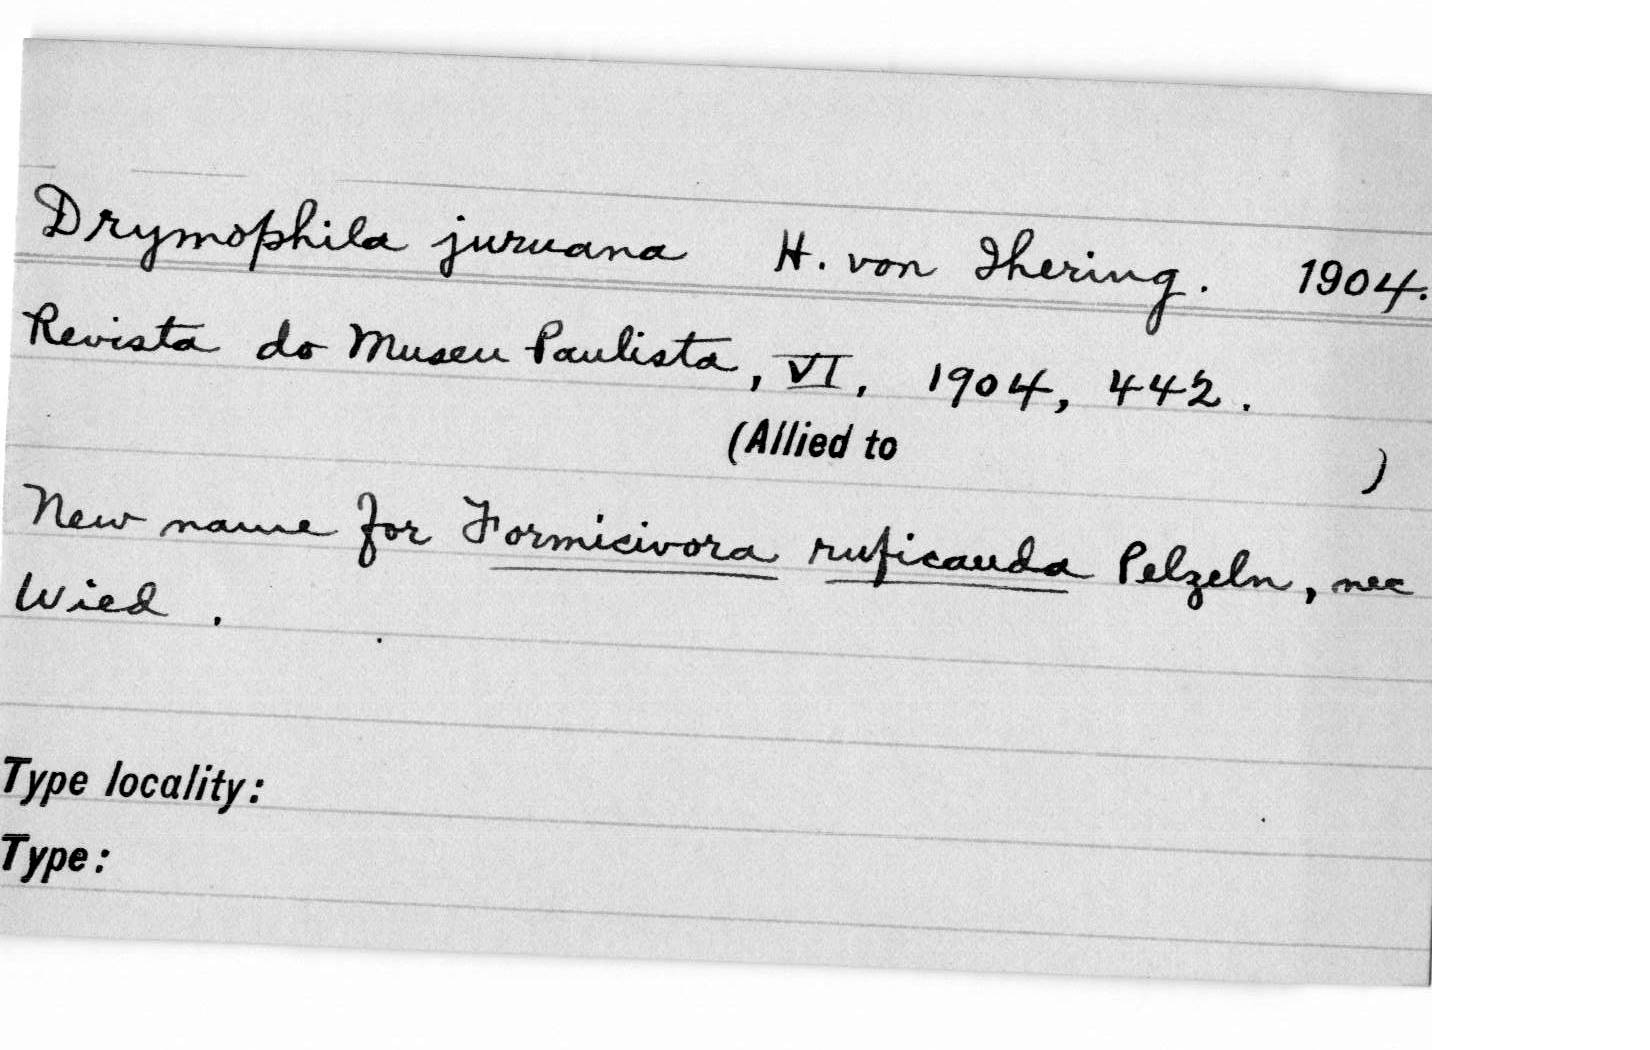 Drymophila juruana H. von Ihering. 1904.
Revista do Museu Paulista, VI, 1904, 442.
(Allied to )
New name for Formicivora ruficauda Pelzeln, nec
Wied.
Type locality:
Type: